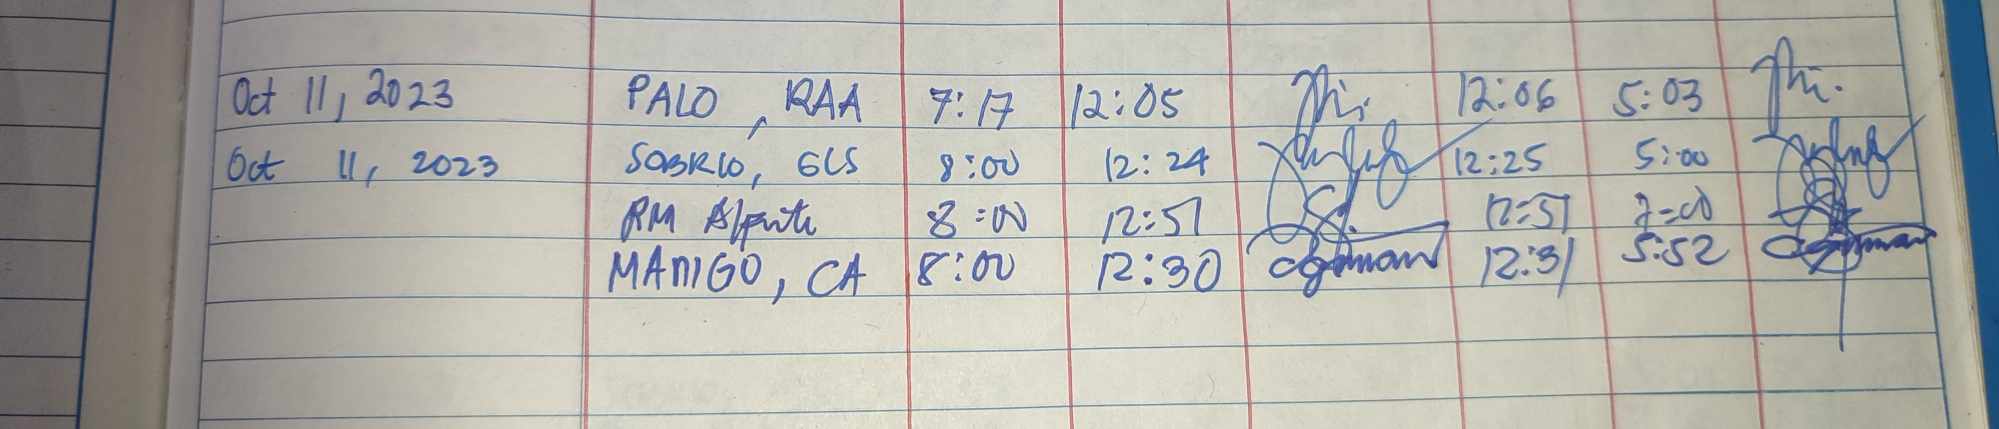 Oct 11, 2023 PALO, RAA 7:17 12:05 12:06 5:03
Oct 11, 2023 SOBRIO, GLS 8:00 12:24 12:25 5:00
RM 8:00 12:51 12:51
MANIGO, CA 8:00 12:30 12:31 5:52